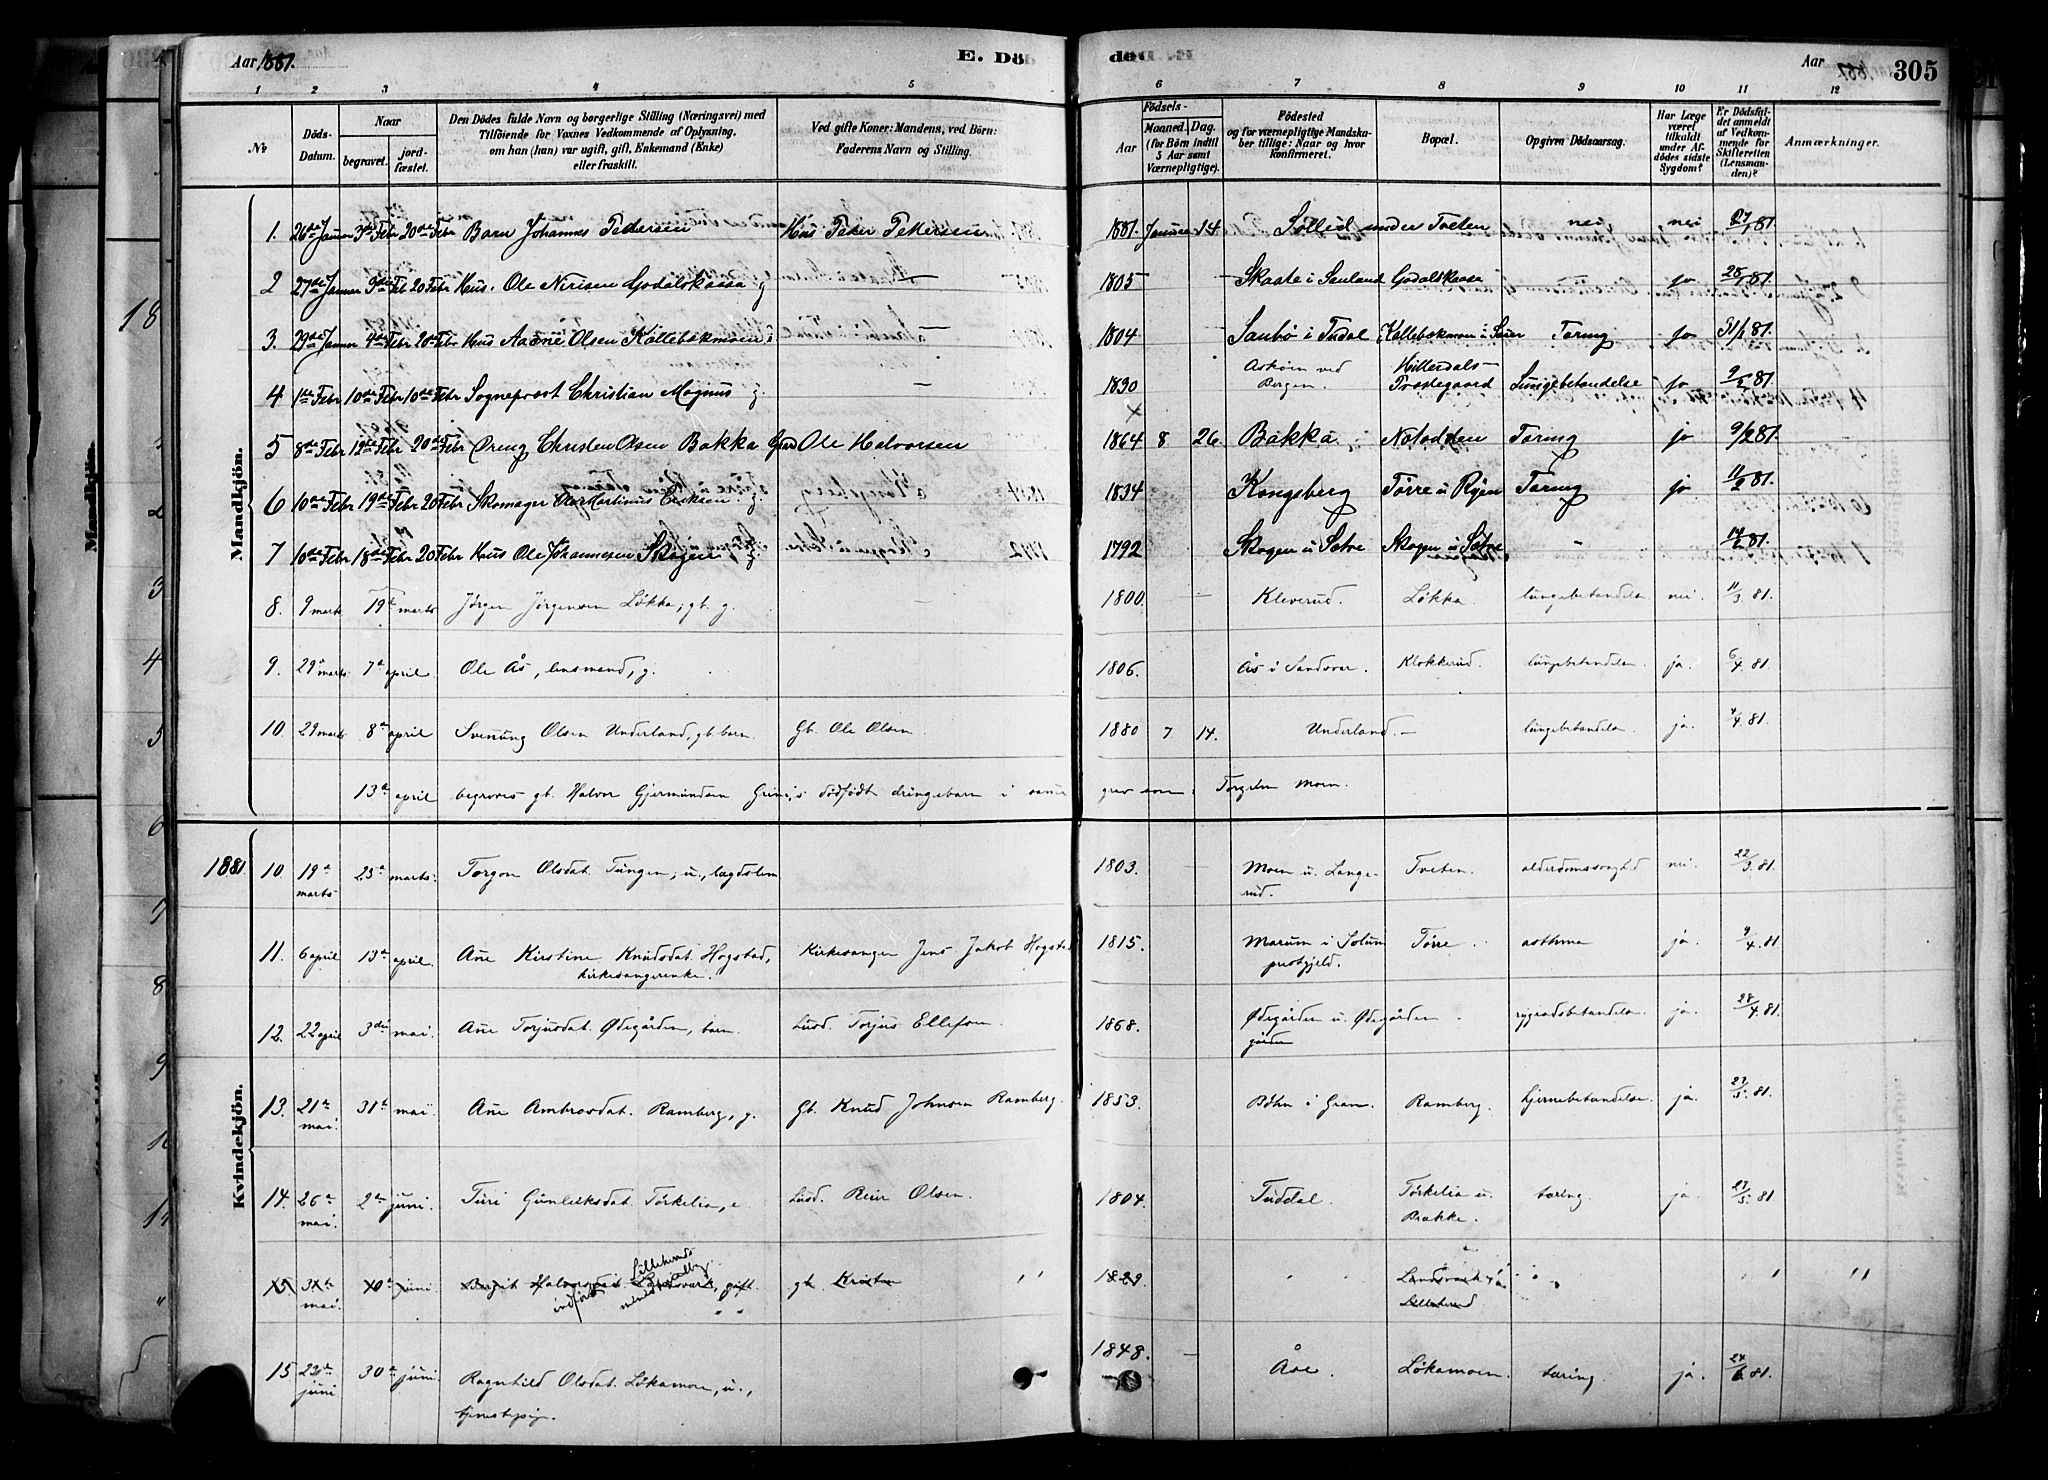 Aar 1881.
E. Döde
Aar 1881.
305
1 2 3 4 5 6 7 8 9 10 11 12
No
Döds-Datum.
Naar begravet. jordfæstet.
Den Dödes fulde Navn og borgerlige Stilling (Næringsvei) med Tilföiende for Voxnes Vedkommende af Oplysning, om han (hun) var ugift, gift, Enkemand (Enke) eller fraskilt.
Ved gifte Koner: Mandens, ved Börn: Faderens Navn og Stilling.
Födsels-
Aar
Maaned. Dag. (for Börn indtil 5 Aar samt Værnepligtige).
Födested og for værnepligtige Mandskaber tillige: Naar og hvor Konfirmeret.
Bopæl.
Opgiven Dödsaarsag.
Har Læge været tilkaldt under Afdödes sidste Sygdom?
Er Dödsfaldet anmeldt af Vedkommende for Skifteretten (Lensmanden)?
Anmærkninger.
Mandkjön.
1. 26de Januar 3die Febr 20de Febr Barn Johannes Pedersen Hus Peter Pettersen 1881. Januar 14 Söllid under Tveten nei nei 27/1 81
2 27de Januar 9de Feb 20 Febr Hus. Ole Nirisen Godalskaasa g — 1805 — Skaate i Sauland Godalskaasa jo 28/1 81
3. 29de Januar 4de Febr 20de Febr Hus Aasne Olsen Kallebækmoen g — 1804 Saubø i Tudal Kallebekmoen i Sauer Taring jo 31/1 81.
4 1ste Febr 10de Febr 10de Febr Sogneprest Christian Magnus g. — 1830 Askøen ved Bergen. Hitterdals Prestegaard Lungebetendelse Jo 9/2 81.
5 8de Febr 12te Febr 20 Febr Dreng Christen Olsen Bakka Grd Ole Halvorsen 1864 8. 26. Bakka Notodden Taring jo 9/2 81.
6 10de Febr 19de Febr 20 Febr Skomager Ole Martinus Eriksen g 1834 Kongsberg Tørre u Ryen Taring jo 11/2 81.
7 10de Febr 18de Febr 20 Febr Huus Ole Johannesen Skogen g 1792 Skogen u Sotve Skogen u Sotve - 14/2 81.
8. 9 marts 19de marts Jørgen Jørgensen Løkka, gb. g. 1800 — Kleverud. Løkka. lungebetændelse nei. 11/3. 81.
9. 29de marts 7de april Ole Ås, lensmand, g. 1806. Ås i Sandsver. Klokkerud. lungebetændelse ja. 6/4. 81.
10. 29 marts 8de april Svenung Olsen Underland, gb. barn. Gb. Ole Olsen 1880 7 14. Underland. — lungebetændelse ja. 4/4. 81.
13de april begraves gb. Halvor Gjermundsen Grini's dödfödt drengebarn i samme grav som Torgeben Moen.
Kvindekjön.
1881 10. 19de marts 25de marts. Torgon Olsdat. Tungen, u., lægdslem 1803. Moen u. Langerud. Tveten. alderdomssvaghed nei. 22/3. 81.
11. 6 april 13de april. Ane Kirstine Knudsdat. Hogstad, kirkesangerenke. Kirkesanger Jens Jakob Hogstad 1815. Marum i Solum prestgjeld. Tørre. asthma ja. 9/4. 81
12. 22 april 3die mai Ane Torjusdat. Ødegården, barn. Lusd. Torjus Ellefsen. 1868. Ødegården u. Ødegården. rygradsbetændelse ja. 28/4. 81.
13. 21de mai. 31te mai Ane Ambrosdat. Ramberg, g. Gb. Knud Johnsen Ramberg. 1853. Böhn i Gran. Ramberg. hjernebetændelse. ja. 23/5. 81.
14. 26de mai. 2den juni. Turi Gunleiksdat. Törkelia, e Lusd. Reier Olsen. 1804. Tuddal. Törkelia u. Brække. tæring. ja. 27/5. 81.
15 31te mai. 10de juni Bergit Halvorsdat. Landsverk, gift. gb. Kristen 1829. Landsverk Lilleherred
indført Lilleherreds
15 23de juni 30te juni. Ragnhild Olsdat. Løkamoen, u., tjenestepige. 1848. — Åse. Løkamoen. tæring. ja. 24/6. 81.